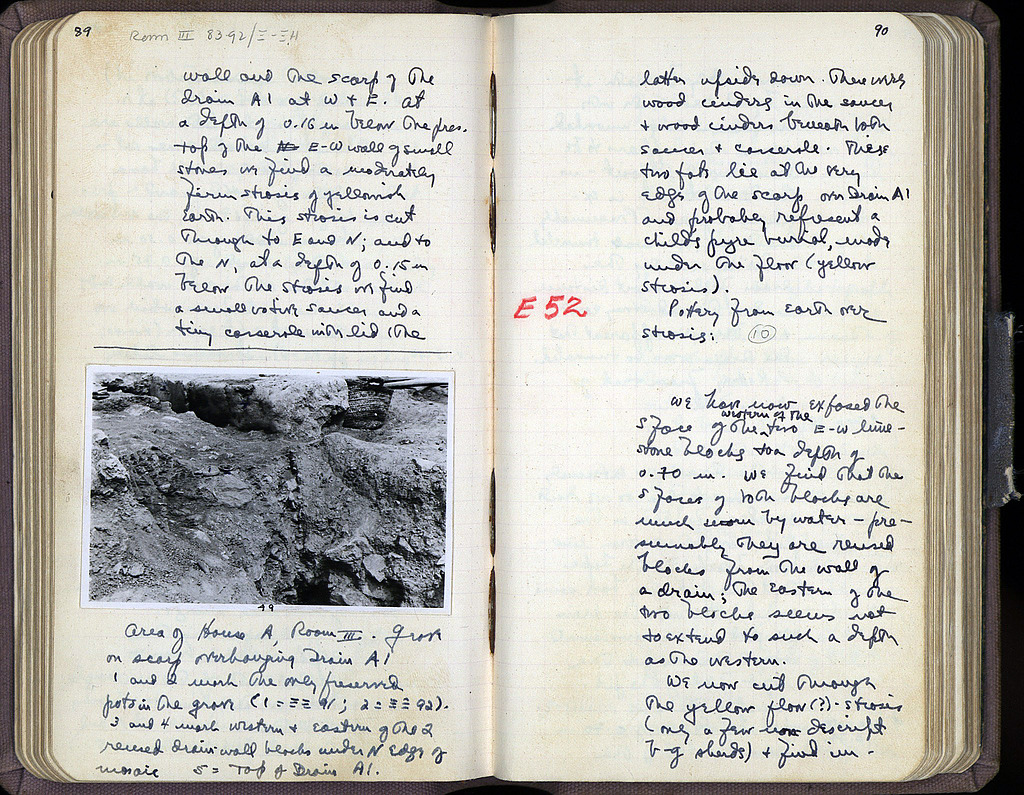 89
Room III 83-92/Ξ-ΞΗ
wall and the scarp of the
drain A1 at W + E. At
a depth of 0.16 m below the pres.
top of the E-W wall of small
stones we find a moderately
firm strosis of yellowish
earth. This strosis is cut
through to E and N; and to
the N, at a depth of 0.15 m
below the strosis we find
a small votive saucer and a
tiny casserole with lid (the
49
Area of House A, Room III. Grave
on scarp overhanging Drain A1
1 and 2 mark the only preserved
pots in the grave (1 = ΞΞ 91; 2 = ΞΞ 92).
3 and 4 mark western + eastern of the 2
reused drain wall blocks under N edge of
mosaic 5 = Top of Drain A1.
90
latter upside down. There were
wood cinders in the saucer
+ wood cinders beneath both
saucer + casserole. These
two pots lie at the very
edge of the scarp over Drain A1
and probably represent a
child's pyre burial, made
under the floor (yellow
strosis).
E 52
Pottery from earth over
strosis: 10
We have now exposed the
S face of the western of the two E-W lime-
stone blocks to a depth of
0.70 m. We find that the
S faces of both blocks are
much worn by water - pre-
sumably they are reused
blocks from the wall of
a drain; the eastern of the
two blocks seems not
to extend to such a depth
as the western.
We now cut through
the yellow floor(?)-strosis
(only a few non descript
b-g sherds) + find im-